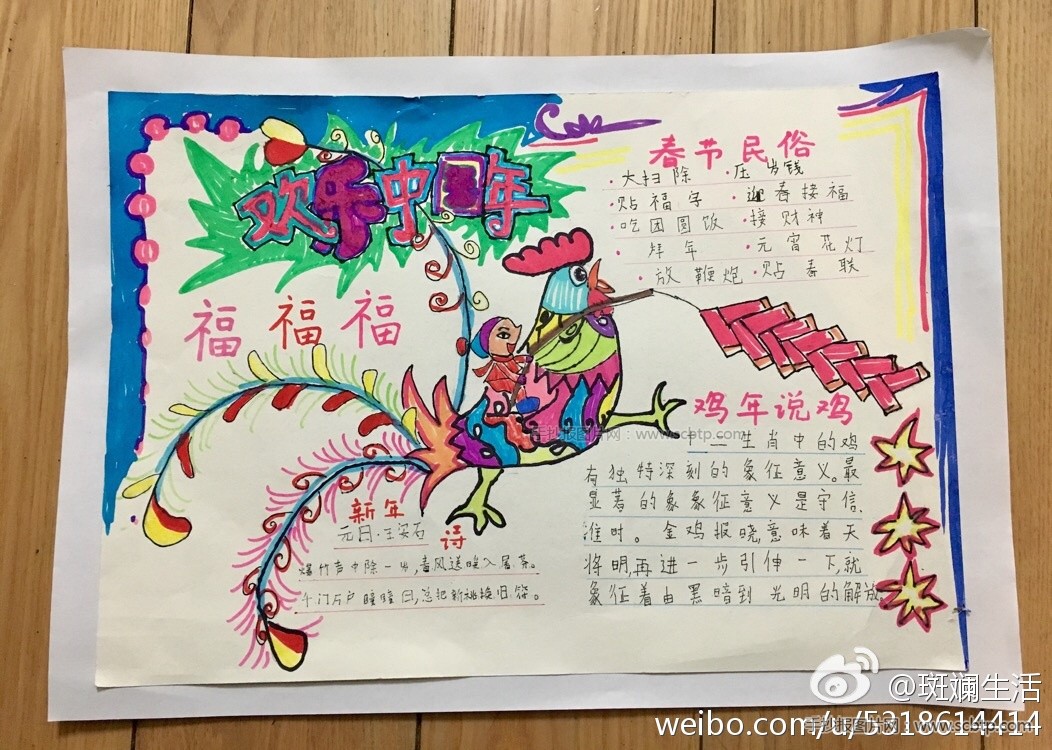 欢乐中国年
福 福 福
春节民俗
·大扫除 ·压岁钱
·贴福字 ·迎春接福
·吃团圆饭 ·接财神
·拜年 ·元宵花灯
·放鞭炮 ·贴春联
鸡年说鸡
十二生肖中的鸡
有独特深刻的象征意义。最
显著的象象征意义是守信、
准时。金鸡报晓意味着天
将明,再进一步引伸一下,就
象征着由黑暗到光明的解放
新年
诗
元日·王安石
爆竹声中除一岁,春风送暖入屠苏。
千门万户曈曈日,总把新桃换旧符。
手抄报图片网:www.scbtp.com
@斑斓生活
weibo.com/u/5318614414
手抄报图片网:www.scbtp.com